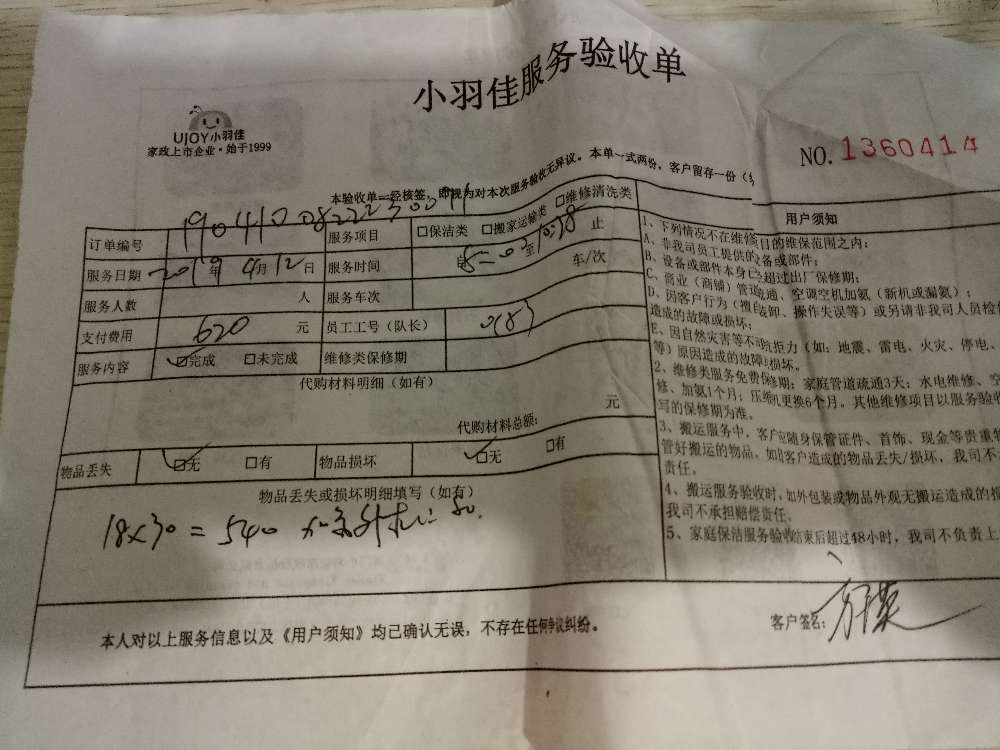 小羽佳服务验收单
UJOY小羽佳
家政上市企业·始于1999
NO. 1360414
本验收单一经核签，即视为对本次服务验收无异议。本单一式两份，客户留存一份（
订单编号
服务项目 □保洁类 □搬家运输类 □维修清洗类
服务日期 2019年 4月12日 服务时间 自 至 止
服务人数 人 服务车次 车/次
支付费用 620 元 员工工号（队长）
服务内容 ☑完成 □未完成 维修类保修期
代购材料明细（如有）
元
代购材料总额：
物品丢失 ☑无 □有 物品损坏 ☑无 □有
物品丢失或损坏明细填写（如有）
18×30=540
本人对以上服务信息以及《用户须知》均已确认无误，不存在任何争议纠纷。
用户须知
1、下列情况不在维修项目的维保范围之内：
A、非我司员工提供的设备或部件；
B、设备或部件本身已超过出厂保修期；
C、商业（商铺）管道疏通、空调空机加氨（新机或漏氨）；
D、因客户行为（擅自装卸、操作失误等）或另请非我司人员检
造成的故障或损坏；
E、因自然灾害等不可抗拒力（如：地震、雷电、火灾、停电、
等）原因造成的故障或损坏。
2、维修类服务免费保修期：家庭管道疏通3天；水电维修、空
修、加氨1个月；压缩机更换6个月。其他维修项目以服务验收
写的保修期为准。
3、搬运服务中，客户应随身保管证件、首饰、现金等贵重
管好搬运的物品。如因客户造成的物品丢失/损坏，我司不
责任。
4、搬运服务验收时，如外包装或物品外观无搬运造成的
我司不承担赔偿责任。
5、家庭保洁服务验收结束后超过48小时，我司不负责上
客户签名：